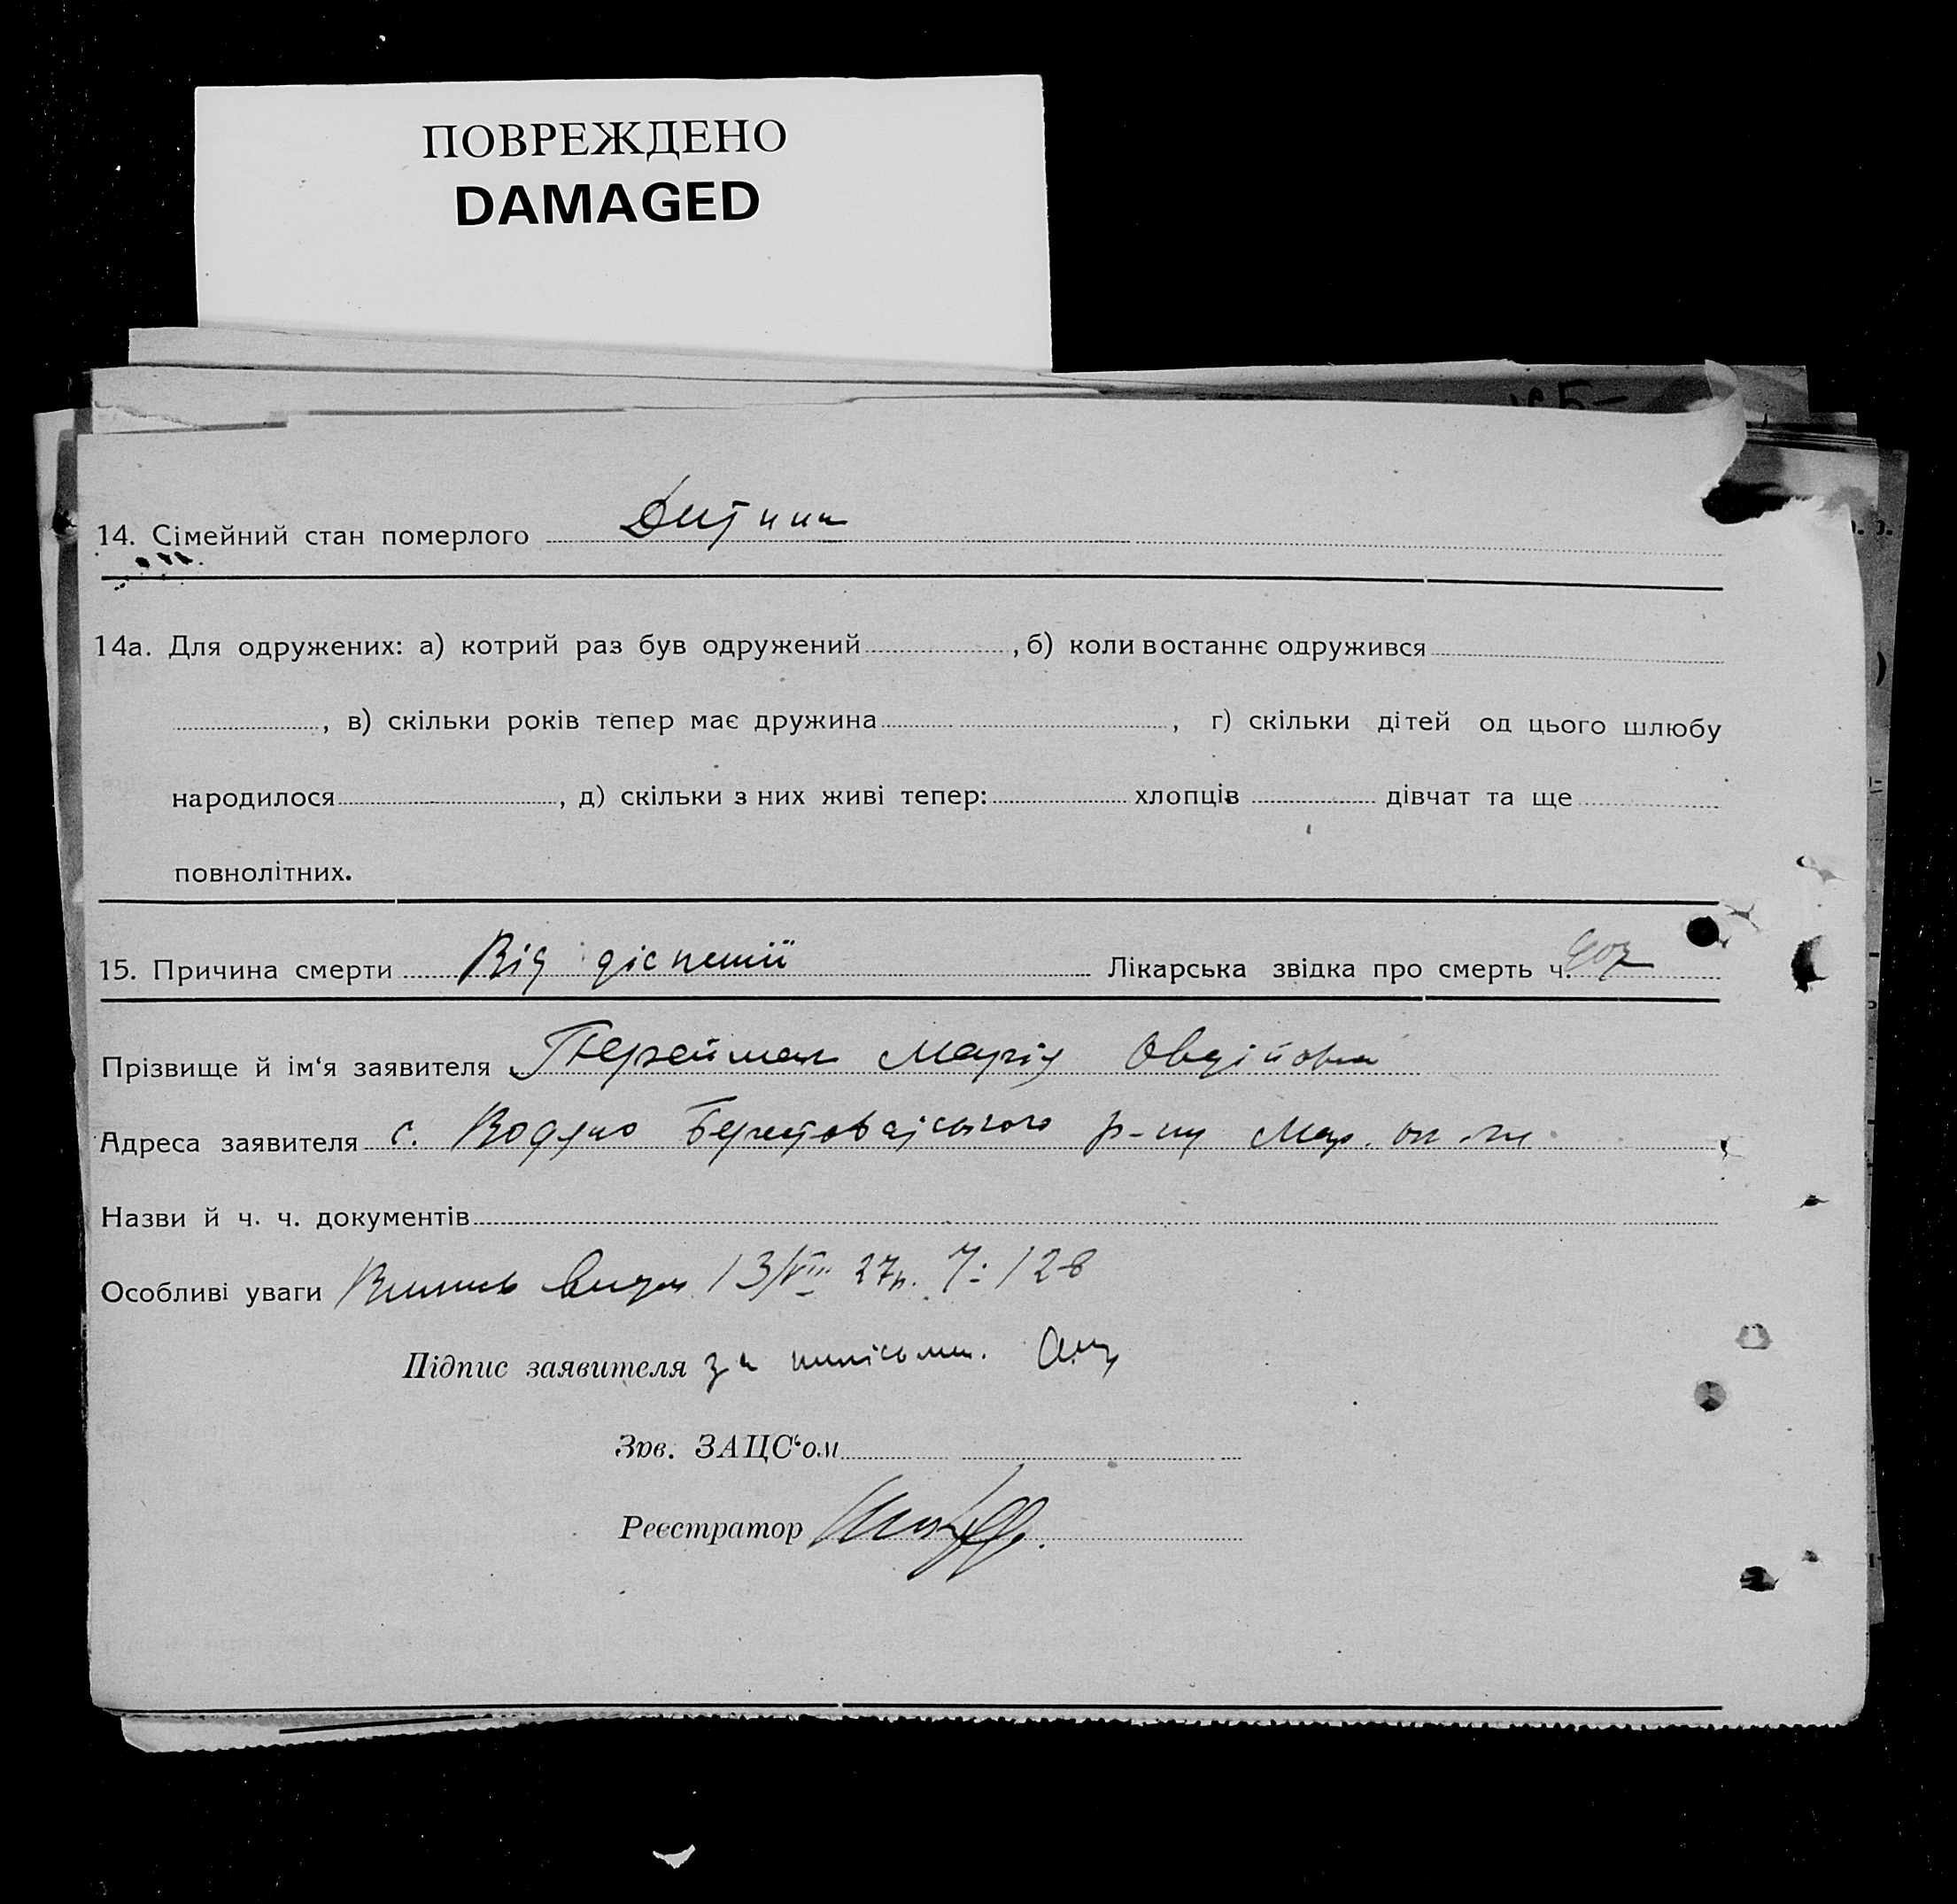 ПОВРЕЖДЕНО
DAMAGED
14. Сімейний стан померлого Дитина
14а. Для одружених: а) котрий раз був одружений , б) коли востаннє одружився
, в) скільки років тепер має дружина , г) скільки дітей од цього шлюбу
народилося , д) скільки з них живі тепер: хлопців дівчат та ще
повнолітних.
15. Причина смерти Від діспепсії Лікарська звідка про смерть ч.
Прізвище й ім‘я заявителя Марія Овдіївна
Адреса заявителя с. Водяно р-ну Мар. ок-ги
Назви й ч. ч. документів
Особливі уваги 13/VIII 27р. 128
Підпис заявителя за
Зав. ЗАЦС‘ом
Реєстратор